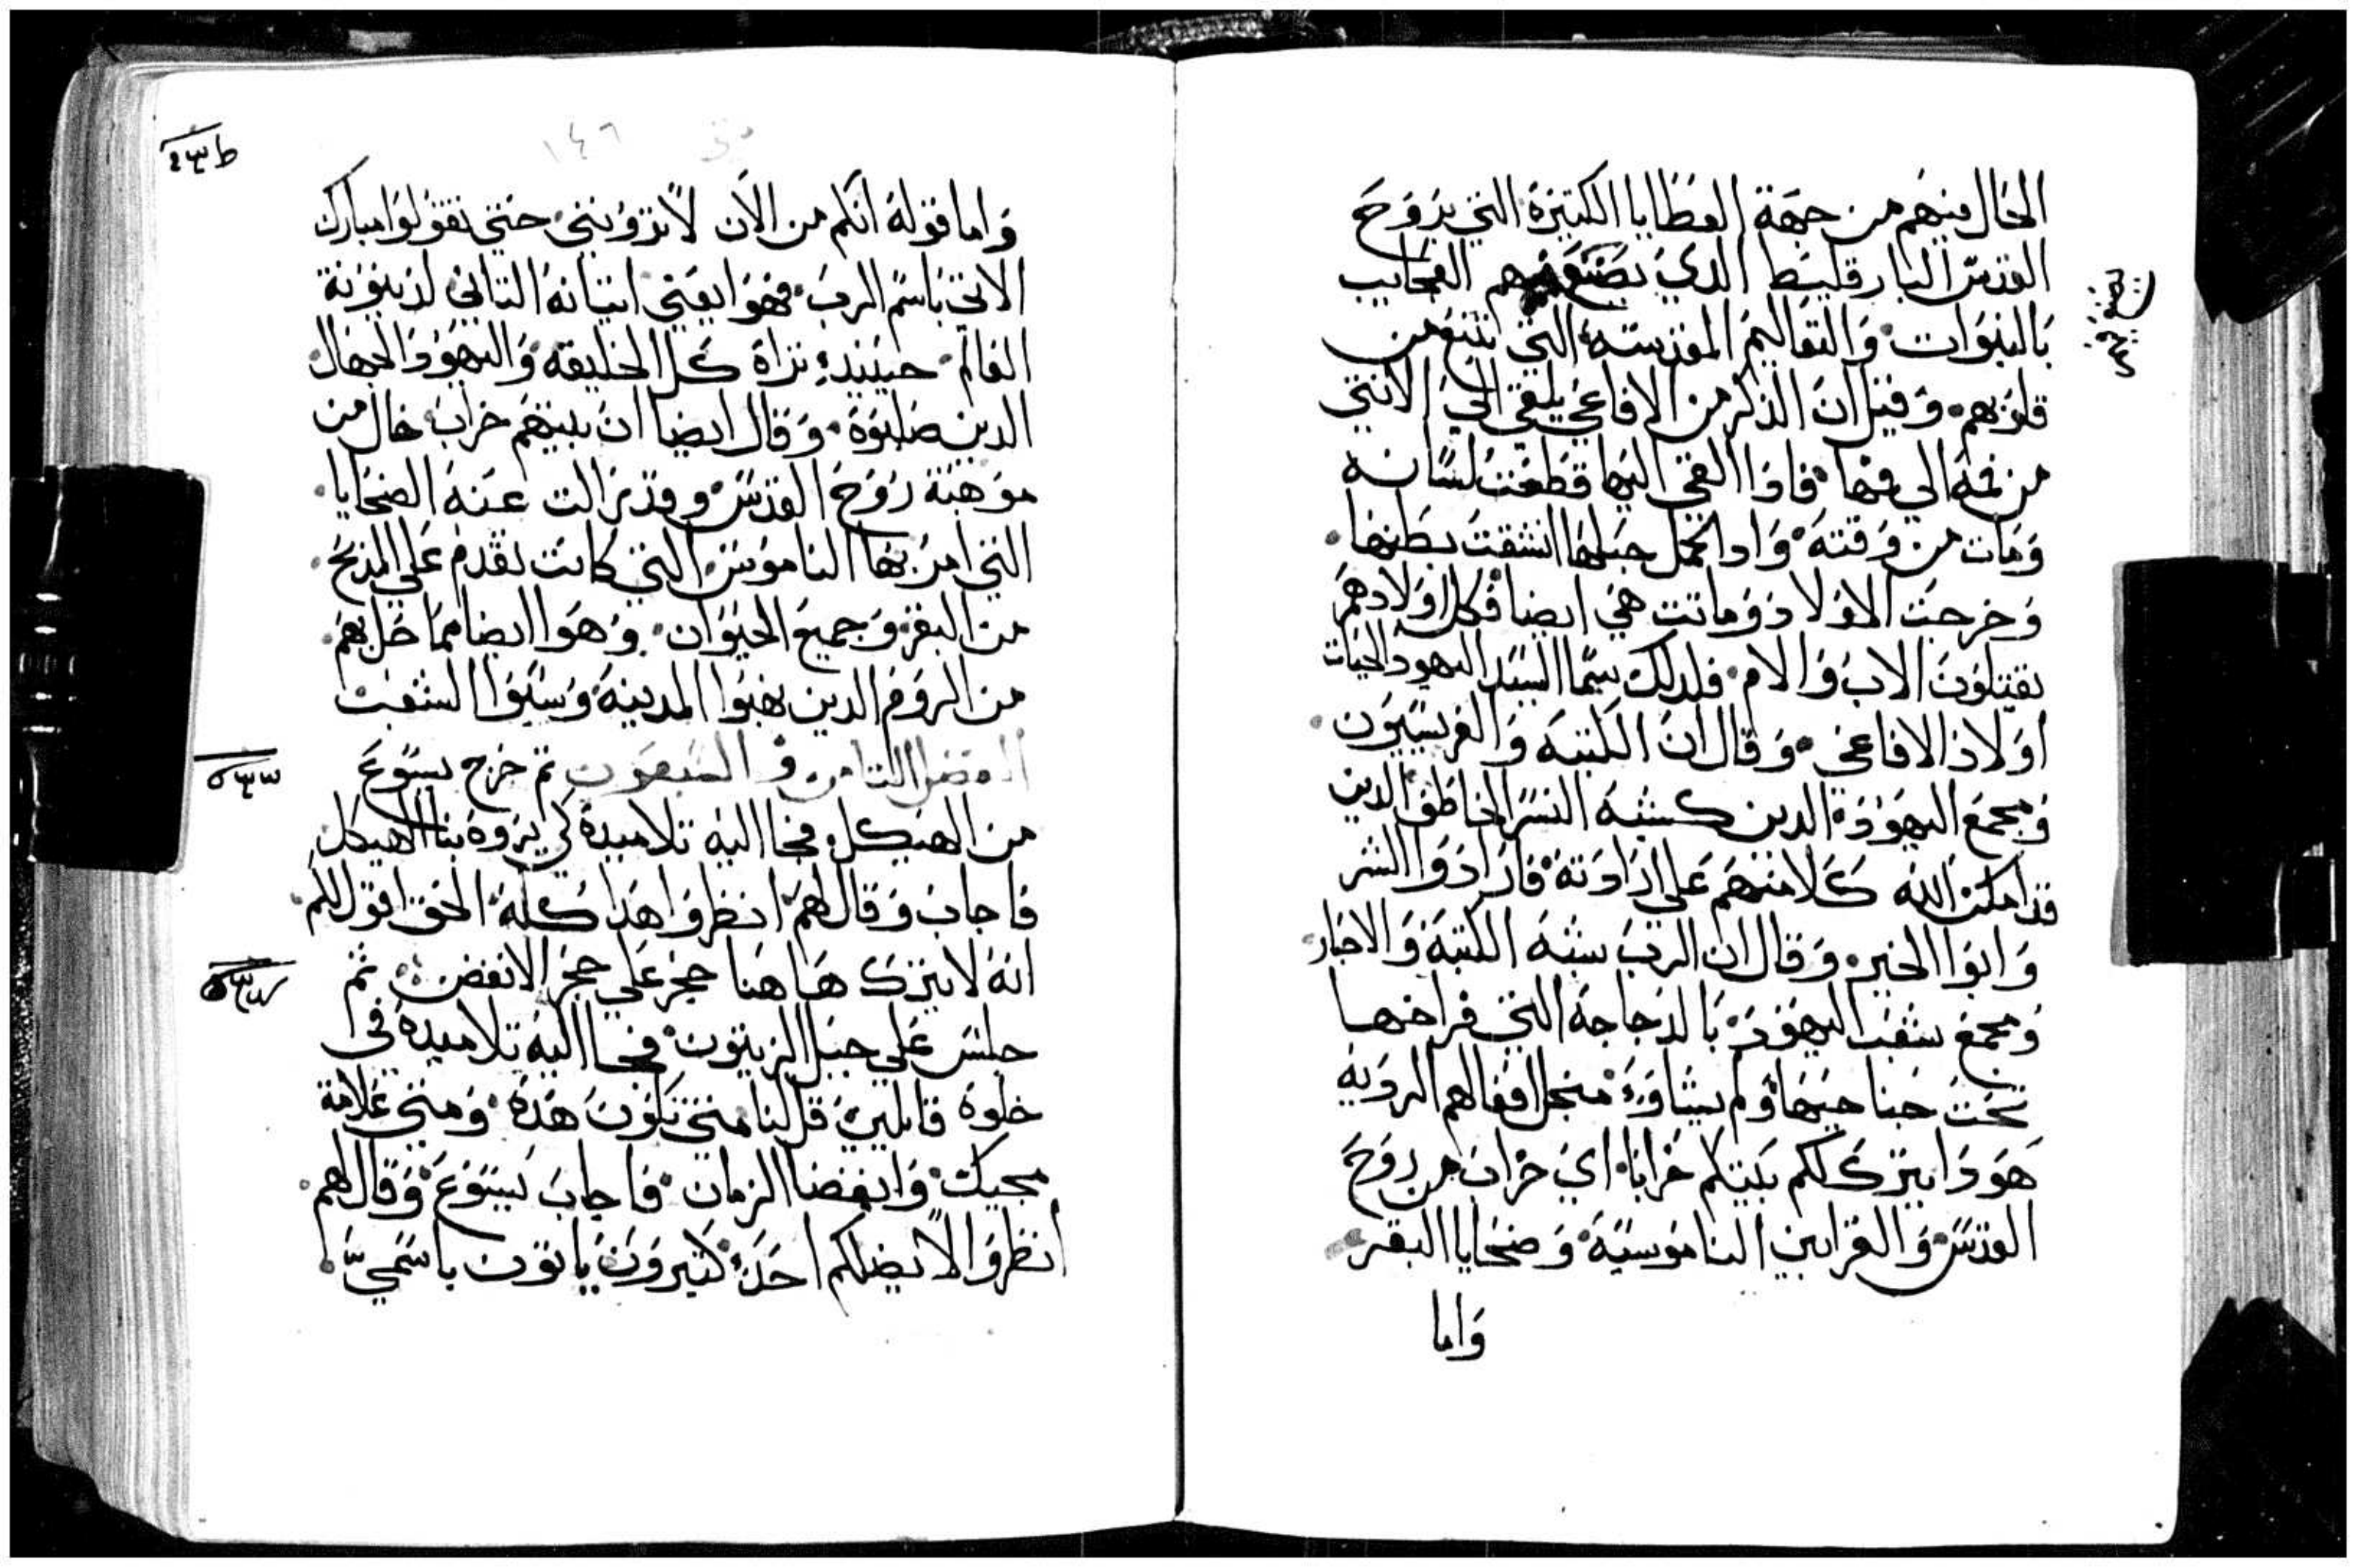 الحال فيهم من جهة العطايا الكتيرة التي بروح
القدس البارقليط الدي يصنع بهم العجايب
بالنبوات والتعاليم المقدسة التي تنبع من
قلوبهم وقيل ان الذكر من الافاعي يلقي الي الانتي
من فمه الي فمها فادا القي اليها قطعت لسانه
ومات من وقته وادا كمل حبلها انشقت بطنها
وخرجت الاولاد وماتت هي ايضا فكل اولادهم
يقتلون الاب والام فلدلك سما السيد اليهود الحيات
اولاد الافاعي وقال ان الكتبه والفريسيون
ومجمع اليهود الدين كشبه النسر الخاطف الدين
قد امكن الله كلا منهم علي ارادته فارادوا الشر
وابوا الخير وقال ان الرب شبه الكتبة والاحبار
ومجمع شعب اليهود بالدجاجة التي فراخها
تحت جناحيها ولم يشاوء منجل افعالهم الرديه
هودا يترك لكم بيتكم خرابا اي خراب من روح
القدس والقرابين الناموسية وضحايا البقر
واما
متي ١٤٦
واما قوله انكم من الان لا تروننى حتي تقولوا مبارك
الاتي باسم الرب فهوا يعني اتيانه التاني لدينونة
العالم حينيد تراه كل الخليقه واليهود الجهال
الدين صلبوه وقال ايضا ان بيتهم خراب خال من
موهبة روح القدس وقد زالت عنه الضحايا
التي امر بها الناموس التي كانت تقدم علي المذبح
من البقر وجميع الحيوان وهوا ايضا مما حل بهم
من الروم الدين نهبوا المدينة وسبوا الشعب
الفصل التامن والسبعون تم خرج يسوع
من الهيكل فجا اليه تلاميده كي يروه بنا الهيكل
فاجاب وقال لهم انظروا هدا كله الحق اقول لكم
انه لا يترك هاهنا حجر علي حجر الا نقض ثم
جلس علي جبل الزيتون فجا اليه تلاميده في
خلوة قايلين قل لنا متي تكون هده ومتي علامة
مجيك وانقضا الزمان فاجاب يسوع وقال لهم
انظروا لا يضلكم احد كتيرون ياتون باسمي